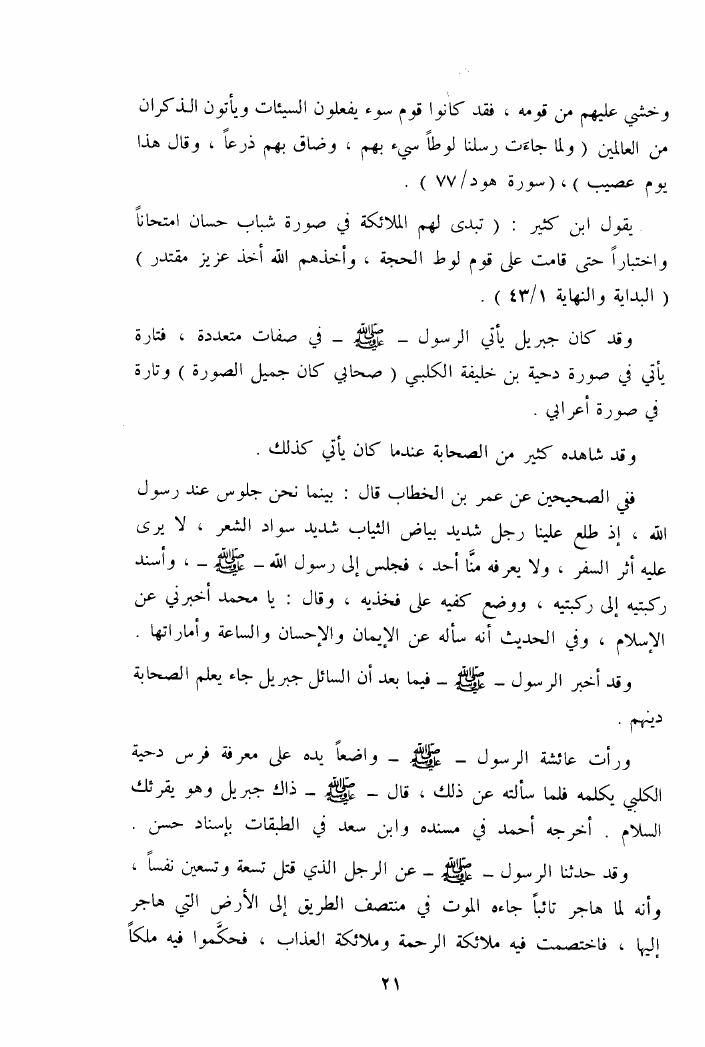 وخشي عليهم من قومه ، فقد كانوا قوم سوء يفعلون السيئات ويأتون الذكران
من العالمين ( ولما جاءت رسلنا لوطاً سيء بهم ، وضاق بهم ذرعاً ، وقال هذا
يوم عصيب ) ، ( سورة هود/٧٧ ) .
يقول ابن كثير : ( تبدى لهم الملائكة في صورة شباب حسان امتحاناً
واختباراً حتى قامت على قوم لوط الحجة ، وأخذهم الله أخذ عزيز مقتدر )
( البداية والنهاية ٤٣/١ ) .
وقد كان جبريل يأتي الرسول ــ ﷺ ــ في صفات متعددة ، فتارة
يأتي في صورة دحية بن خليفة الكلبي ( صحابي كان جميل الصورة ) وتارة
في صورة أعرابي .
وقد شاهده كثير من الصحابة عندما كان يأتي كذلك .
ففي الصحيحين عن عمر بن الخطاب قال : بينما نحن جلوس عند رسول
الله ، إذ طلع علينا رجل شديد بياض الثياب شديد سواد الشعر ، لا يرى
عليه أثر السفر ، ولا يعرفه منَّا أحد ، فجلس إلى رسول الله ــ ﷺ ــ ، وأسند
ركبتيه إلى ركبتيه ، ووضع كفيه على فخذيه ، وقال : يا محمد أخبرني عن
الإسلام ، وفي الحديث أنه سأله عن الإيمان والإحسان والساعة وأماراتها .
وقد أخبر الرسول ــ ﷺ ــ فيما بعد أن السائل جبريل جاء يعلم الصحابة
دينهم .
ورأت عائشة الرسول ــ ﷺ ــ واضعاً يده على معرفة فرس دحية
الكلبي يكلمه فلما سألته عن ذلك ، قال ــ ﷺ ــ ذاك جبريل وهو يقرئك
السلام . أخرجه أحمد في مسنده وابن سعد في الطبقات بإسناد حسن .
وقد حدثنا الرسول ــ ﷺ ــ عن الرجل الذي قتل تسعة وتسعين نفساً ،
وأنه لما هاجر تائباً جاءه الموت في منتصف الطريق إلى الأرض التي هاجر
إليها ، فاختصمت فيه ملائكة الرحمة وملائكة العذاب ، فحكَّموا فيه ملكاً
٢١